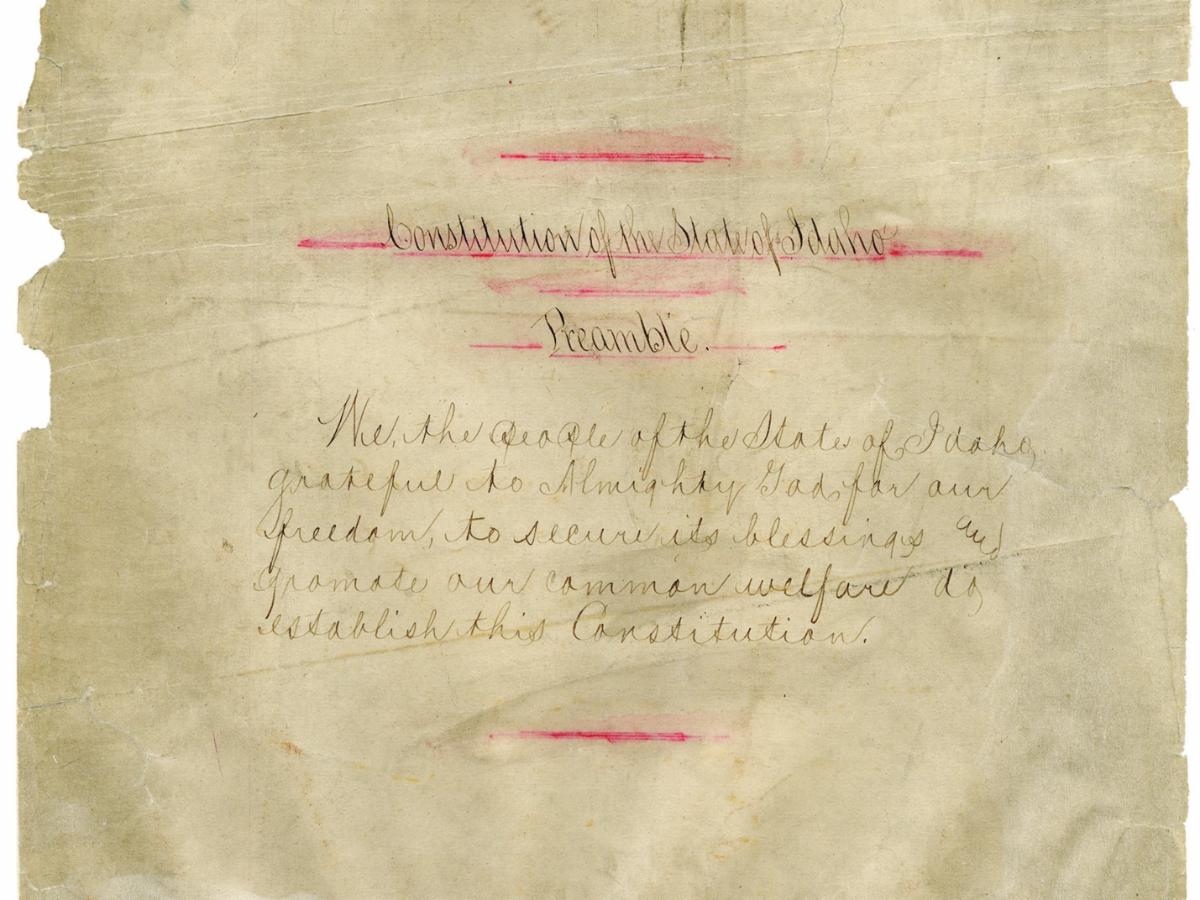 Constitution of the State of Idaho
Preamble.
We, the people of the State of Idaho,
grateful to Almighty God, for our
freedom, to secure its blessings and
promote our common welfare do
establish this Constitution.